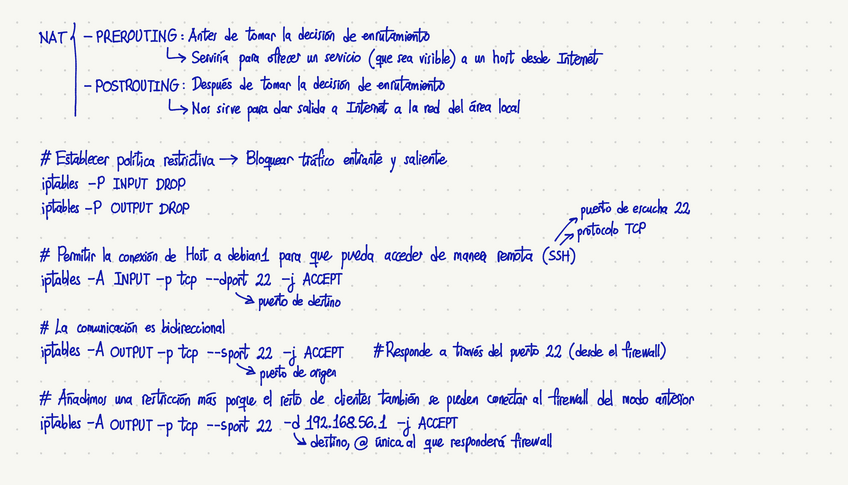 NAT - PREROUTING: Antes de tomar la decisión de enrutamiento
Serviría para ofrecer un servicio (que sea visible) a un host desde Internet
- POSTROUTING: Después de tomar la decisión de enrutamiento
Nos sirve para dar salida a Internet a la red del área local
# Establecer política restrictiva → Bloquear tráfico entrante y saliente
iptables -P INPUT DROP
iptables -P OUTPUT DROP
puerto de escucha 22
protocolo TCP
# Permitir la conexión de Host a debian1 para que pueda acceder de manera remota (SSH)
iptables -A INPUT -p tcp --dport 22 -j ACCEPT
puerto de destino
# La comunicación es bidireccional
iptables -A OUTPUT -p tcp --sport 22 -j ACCEPT #Responde a través del puerto 22 (desde el firewall)
puerto de origen
# Añadimos una restricción más porque el resto de clientes también se pueden conectar al firewall del modo anterior
iptables -A OUTPUT -p tcp --sport 22 -d 192.168.56.1 -j ACCEPT
destino, @ única al que responderá firewall